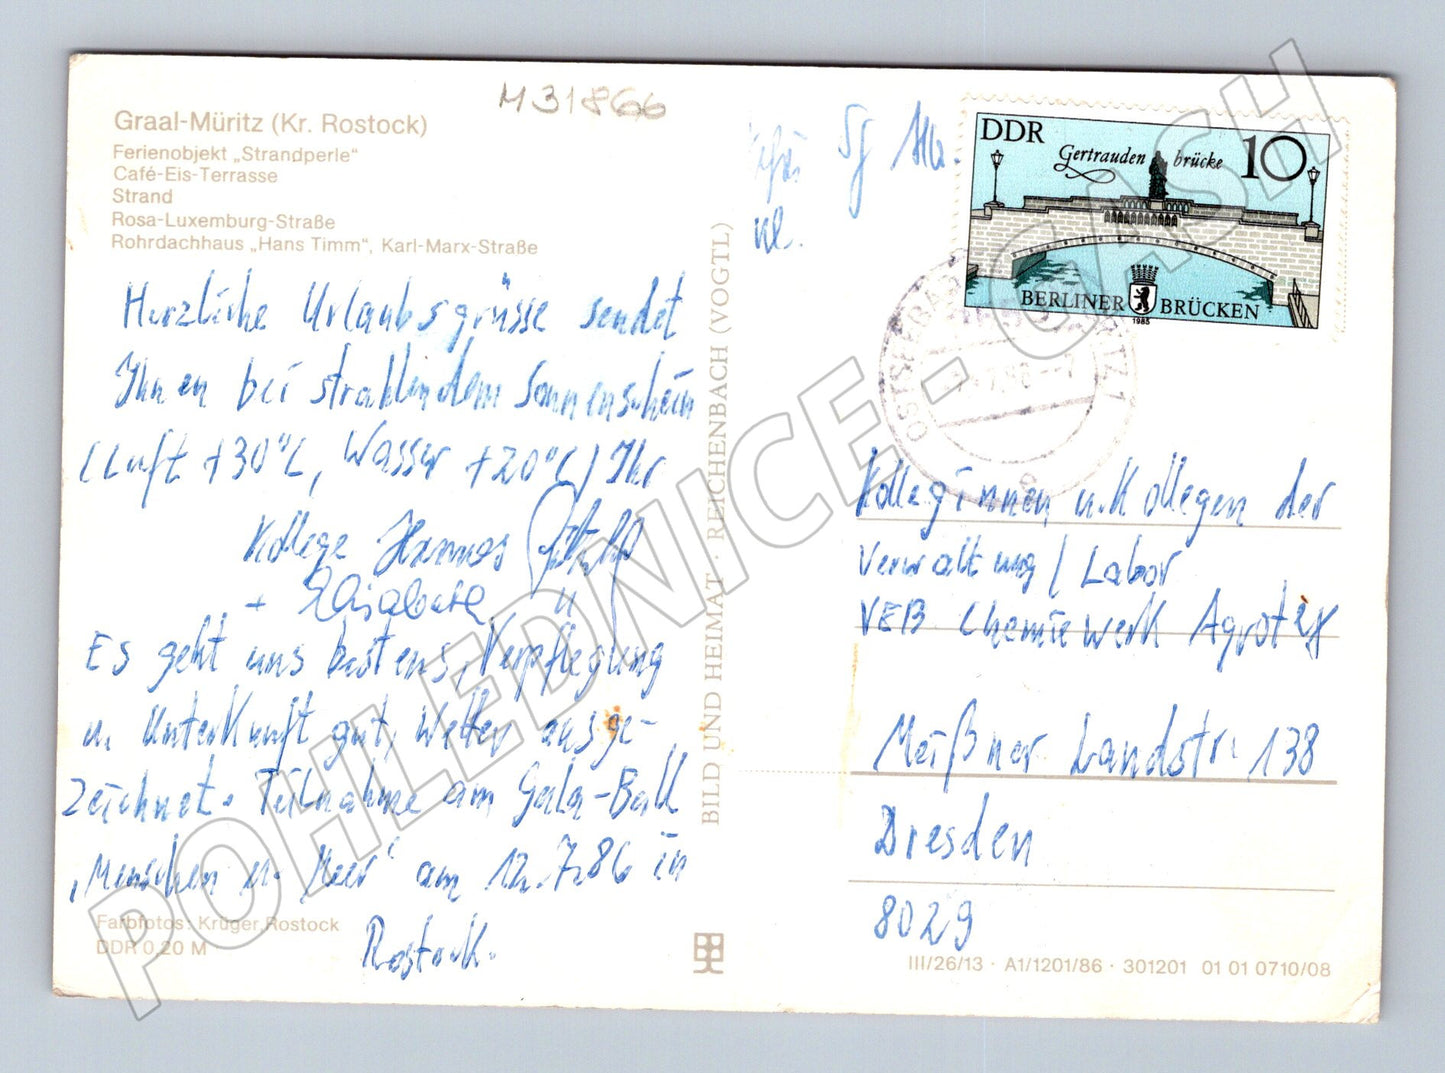 M31866
Graal-Müritz (Kr. Rostock)
Ferienobjekt „Strandperle“
Café-Eis-Terrasse
Strand
Rosa-Luxemburg-Straße
Rohrdachhaus „Hans Timm“, Karl-Marx-Straße
Herzliche Urlaubsgrüsse sendet
Ihnen bei strahlendem Sonnenschein
(Luft +30°C, Wasser +20°C) Ihr
Kollege Hannes
+ Elisabeth
Es geht uns bestens, Verpflegung
u. Unterkunft gut, Wetter ausge-
zeichnet. Teilnahme am Gala-Ball
„Menschen u. Meer“ am 12.7.86 in
Rostock.
Farbfotos: Krüger, Rostock
DDR 0,20 M
BILD UND HEIMAT · REICHENBACH (VOGTL)
DDR
Gertrauden brücke
10
BERLINER BRÜCKEN
1985
OSTSEEBAD
Kolleginnen u. Kollegen der
Verwaltung / Labor
VEB Chemiewerk Agrotex
Meißner Landstr. 138
Dresden
8029
III/26/13 · A1/1201/86 · 301201 01 01 0710/08
POHLEDNICE - CASH